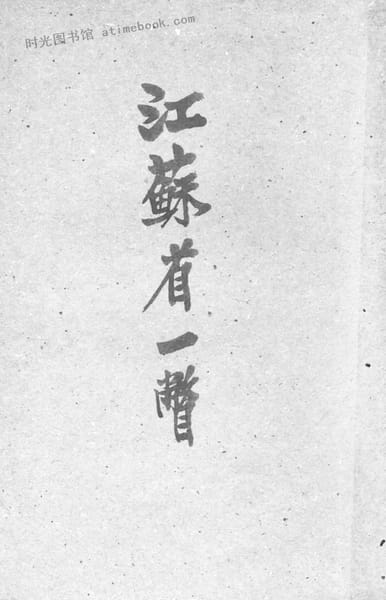 时光图书馆 atimebook.com
江蘇省一瞥